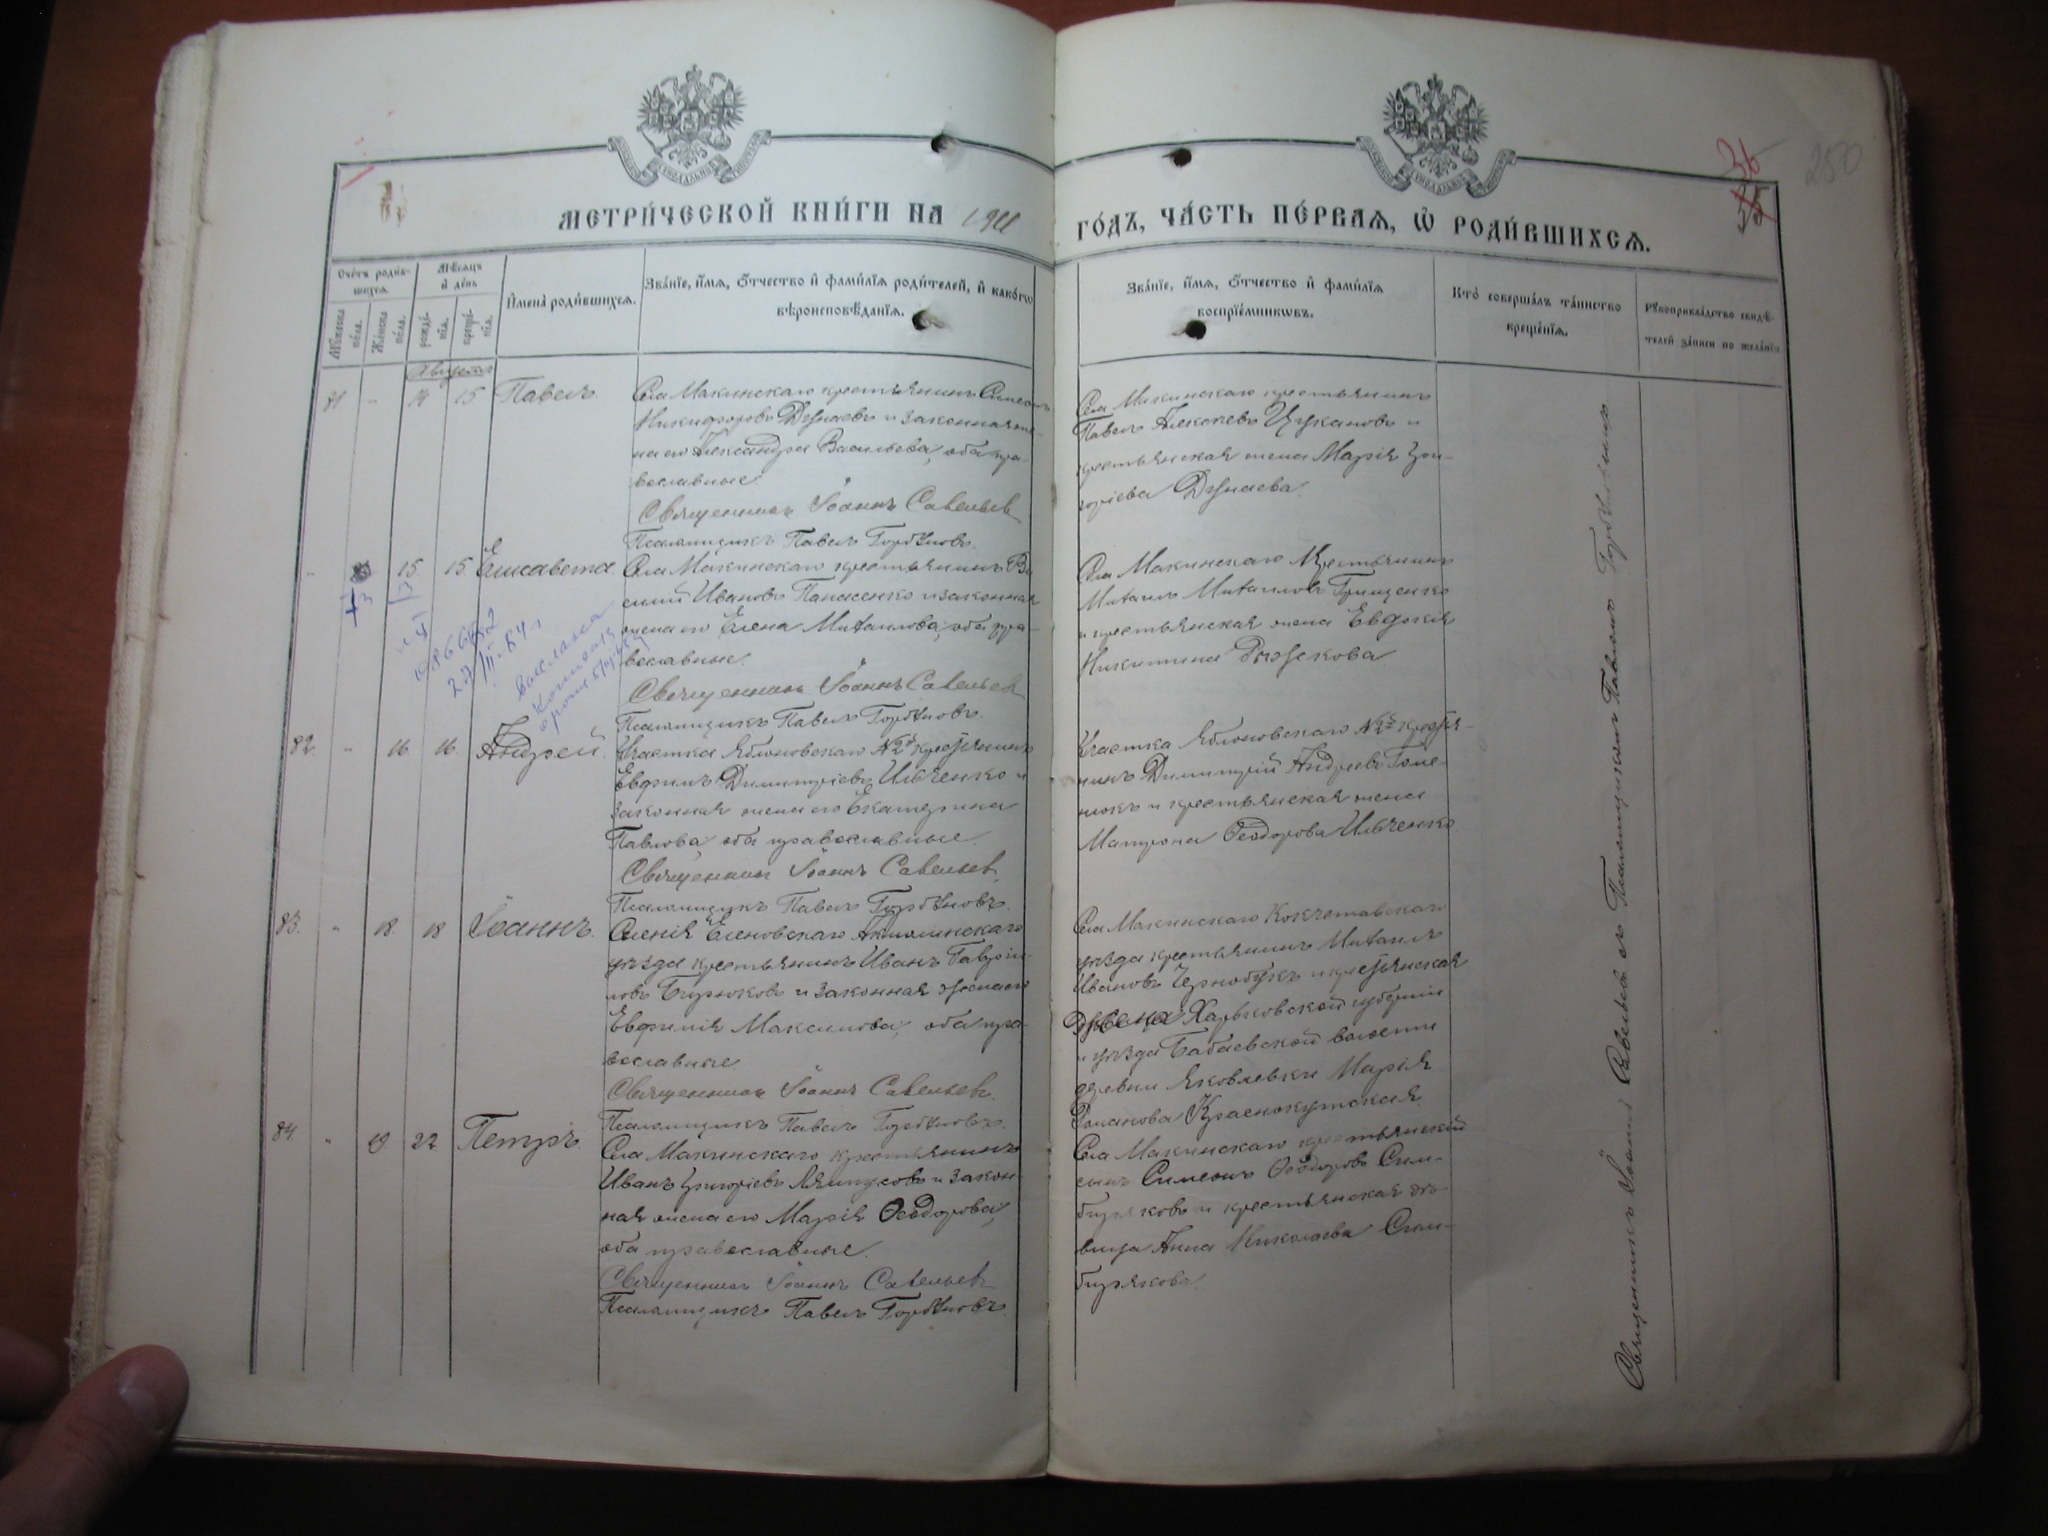 МЕТРИ́ЧЕСКОЙ КНИ́ГИ НА 1911 ГО́ДЪ, ЧА́СТЬ ПЕ́РВАѦ, Ѡ РОДИ́ВШИХСѦ.
36
35
250
Сче́тъ роди́в-
шихсѧ.
Мѣ́сѧцъ
и́ де́нь
Му́жеска по́ла.
Же́нска по́ла.
рожде́-
нїѧ.
креще́-
нїѧ.
И́мена̀ роди́вшихсѧ.
Зва́нїе, и́мѧ, ѻ́тчество и́ фами́лїѧ роди́телей, и́ како́гѡ
вѣроисповѣ́данїѧ.
Зва́нїе, и́мѧ, ѻ́тчество и́ фами́лїѧ
воспрїе́мникѡвъ.
Кто̀ соверша́лъ та́инство
креще́нїѧ.
Рꙋкоприкла́дство свидѣ́-
телей за́писи по жела́нїю
Августъ
81. " 14 15. Павелъ.
Села Макинскаго крестьянинъ Симеонъ
Никифоровъ Дунаевъ и законная же-
на его Александра Васильева, оба пра-
вославные.
Священникъ Іоаннъ Савельев
Псаломщикъ Павелъ Горбуновъ.
Села Макинскаго крестьянинъ
Павелъ Алексеевъ Цукановъ и
крестьянская жена Марія Гри-
горіева Дунаева.
" 73 15. 15. Елисавета
Села Макинскаго крестьянинъ Ва
силій Ивановъ Панасенко и законная
жена его Елена Михаилова, оба пра-
вославные.
Священникъ Іоаннъ Савельев
Псаломщикъ Павелъ Горбуновъ.
Села Макинскаго Крестьянинъ
Михаилъ Михаиловъ Грищенко
и крестьянская жена Евдокія
Никитина
27/II-84 г
выслана
82. " 16 16. Андрей.
Участка Яблоновскаго №2й крестьянинъ
Евфимъ Димитріевъ Ильченко и
законная жена его Екатерина
Павлова оба православные.
Священникъ Іоаннъ Савельев.
Псаломщикъ Павелъ Горбуновъ.
Участка Яблоновскаго №2й крестья-
нинъ Димитрій Андреевъ Гоме-
нюкъ и крестьянская жена
Матрона Ѳеодорова Ильченко.
83. " 18. 18 Іоаннъ.
Селенія Еленовскаго Акмолинскаго
уѣзда крестьянинъ Иванъ Гаврiи-
ловъ Бирюковъ и законная жена его
Евфимія Максимова, оба пра-
вославные
Священникъ Іоаннъ Савельевъ.
Псаломщикъ Павелъ Горбуновъ.
Села Макинскаго Кокчетавскаго
уѣзда крестьянинъ Михаилъ
Ивановъ Чернобукъ и крестьянская
Харьковской губерніи
и уѣзда Бабаевской волости
деревни Яковлевки Марія
Романова Краснокутская.
84. " 19. 22 Петръ.
Села Макинскаго крестьянинъ
Иванъ Григоріевъ Ляпуновъ и закон-
ная жена его Марія Ѳеодорова,
оба православные.
Священникъ Іоаннъ Савельев
Псаломщикъ Павелъ Горбуновъ.
Села Макинскаго крестьянскій
сынъ Симеонъ Ѳеодоровъ Сим-
биряковъ и крестьянская дѣ-
вица Анна Николаева Сим-
бирякова.
Священникъ Іоаннъ Савельевъ съ Псаломщикомъ Павломъ Горбуновымъ